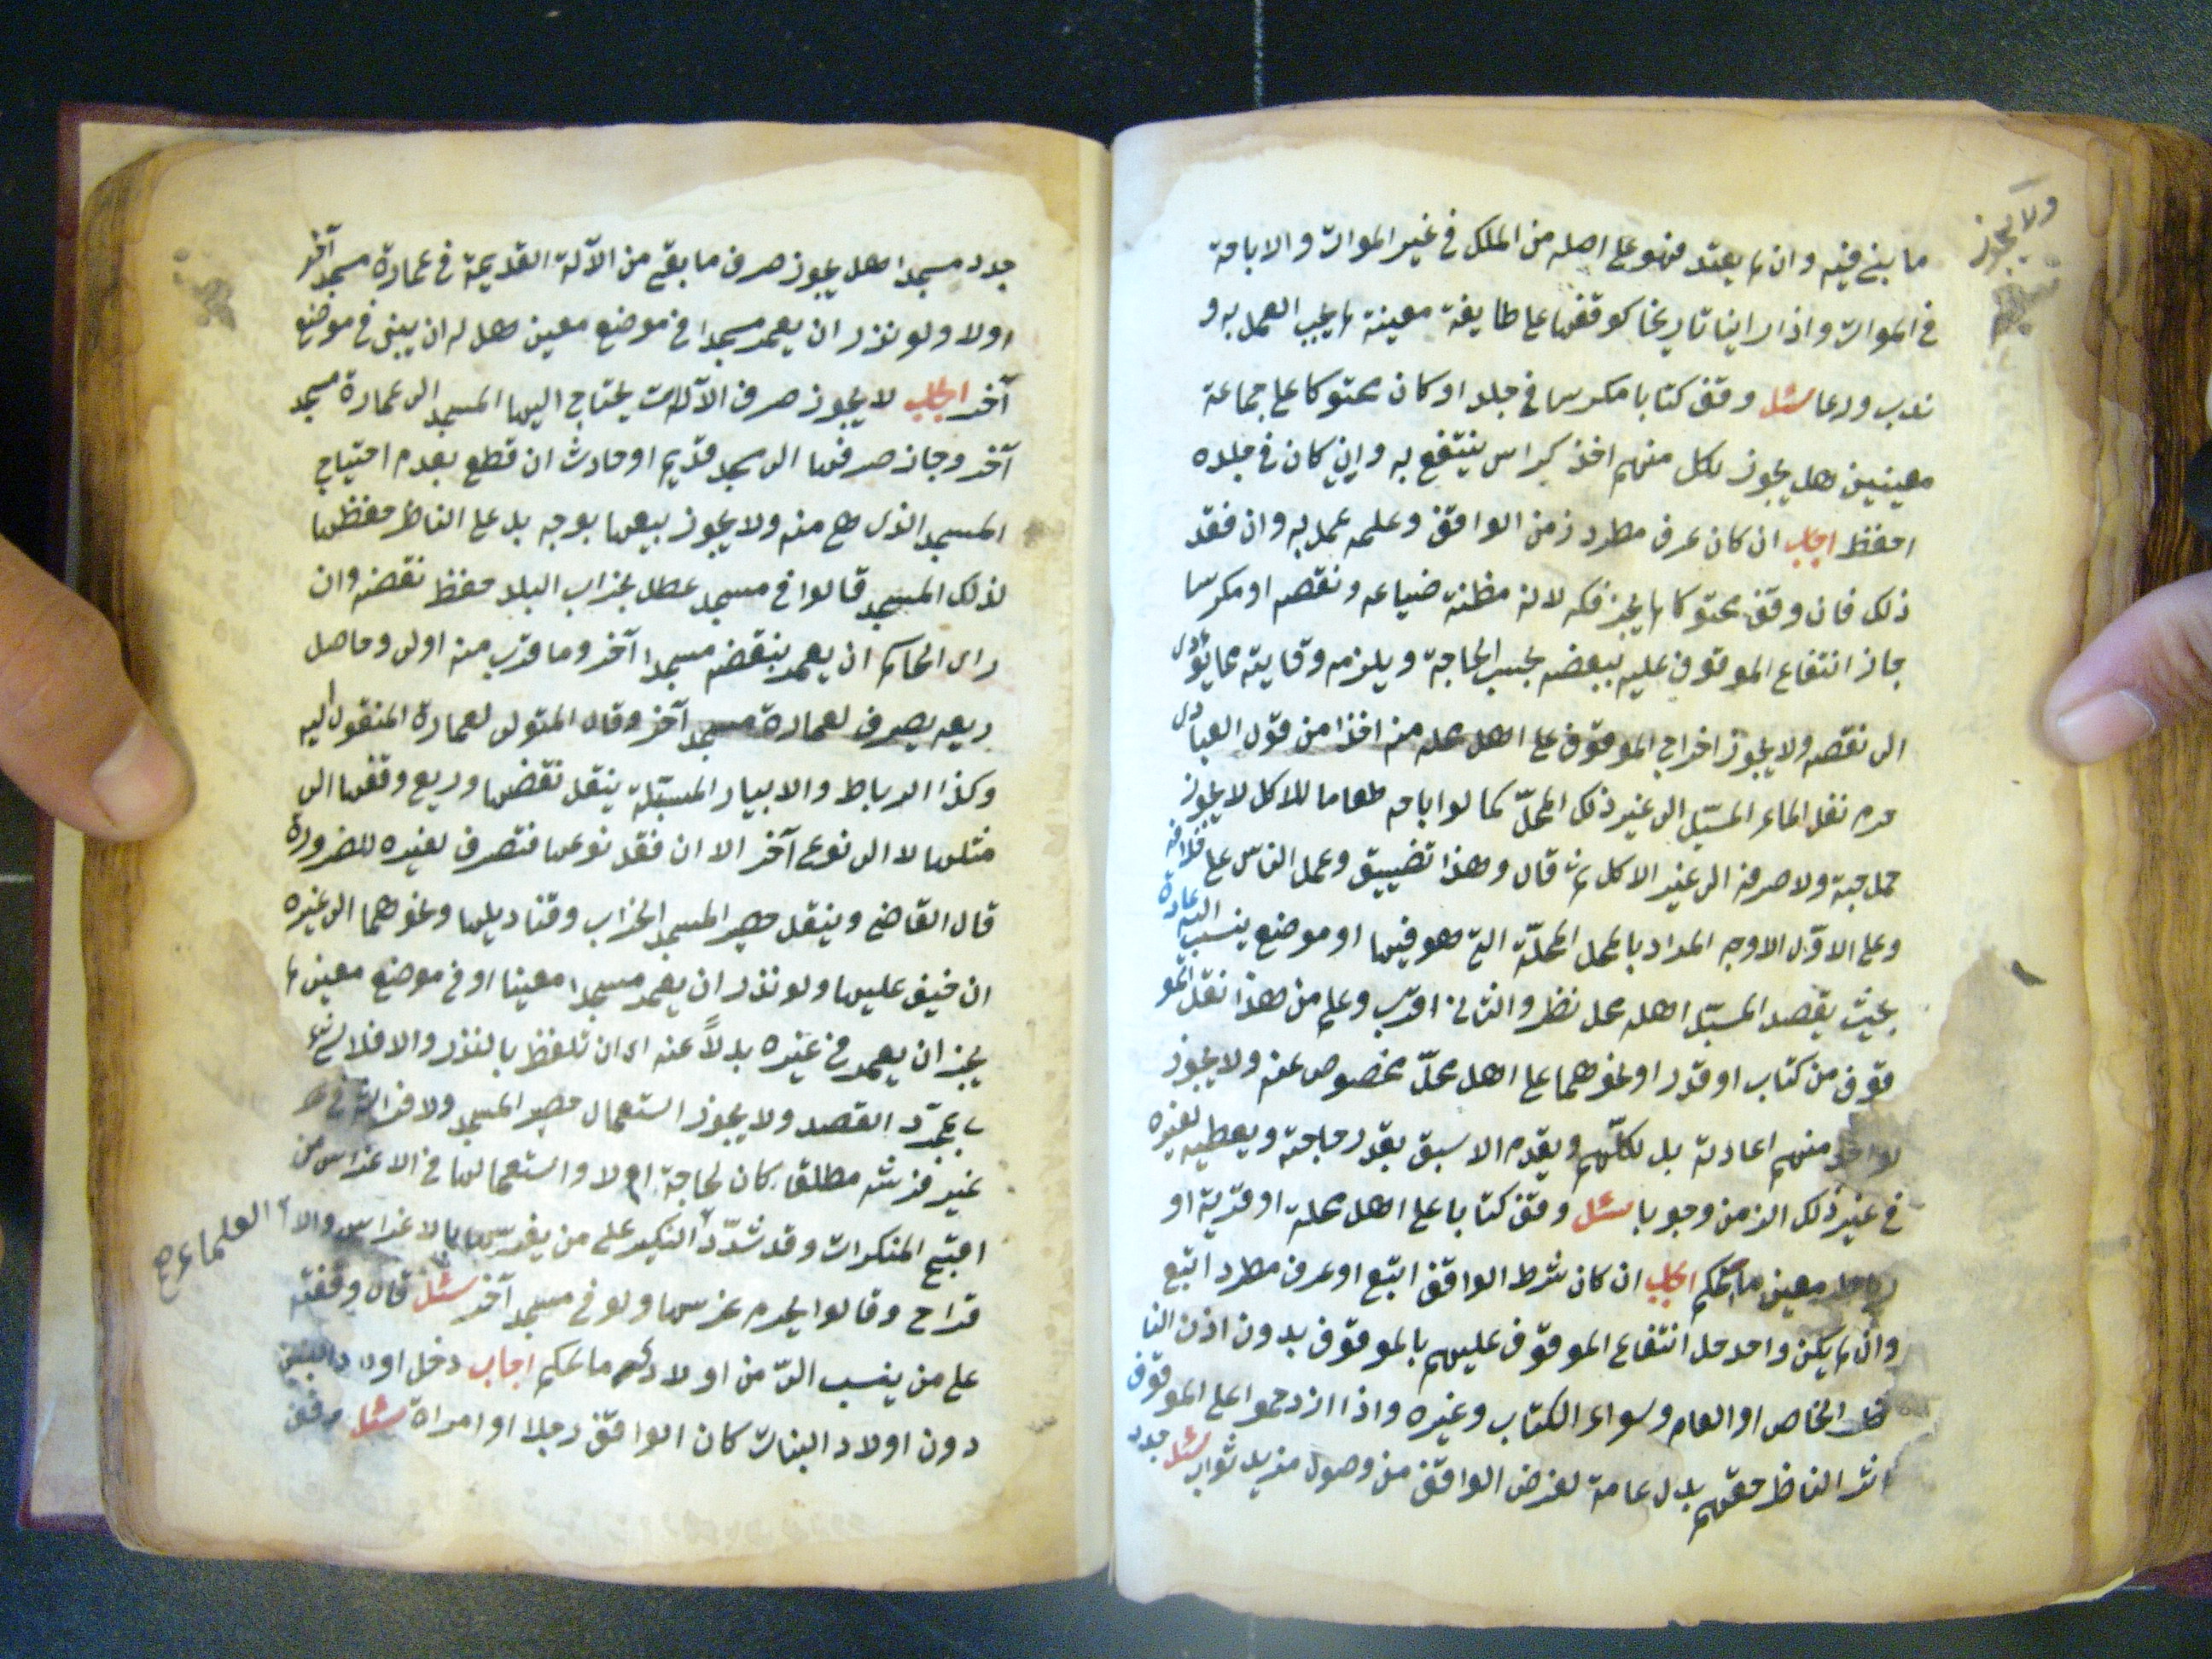 ما بني فيه وان لم يعتد فهو على اصله من الملك في غير الموات والاباحة
في الموات واذا راينا تاريخا كوقفها على طايفة معينة لم يجب العمل به و
ندب ورعا سئل وقف كتابا مكرسا في جلد او كان محتوكا على جماعة
معينين هل يجوز لكل منهم اخذ كراس ينتفع به وان كان في جلده
احفظ اجاب ان كان عرف مطرد زمن الواقف وعلمه عمل به وان فقد
ذلك فان وقف محتوكا لم يجز فكه لانه مظنة ضياعه ونقصه او مكرسا
جاز انتفاع الموقوف عليه ببعضه بحسب الحاجة ويلزمه وقايته عما يؤدى
الى نقصه ولا يجوز اخراج الموقوف على اهل محله منه اخذا من قول العبادى
حرم نقل الماء المسبّل الى غير ذلك المحلّ كما لو اباحه طعاما للاكل لا يجوز
حمل حبة ولا صرفه الى غير الاكل ثم قال وهذا تضييق وعمل الناس على خلافه
وعلى الاوّل الاوجه المراد بالمحل المحلّة التي هو فيها او موضع ينسب اليه عادة
بحيث يقصد المسبّل اهله محل نظر والثاني اقرب وعلم من هذا نقل المو
قوف من كتاب او قدر او نحوهما على اهل محلّ مخصوص عنه ولا يجوز
لواحد منهم اعادته بل لكلّهم ويقدم الاسبق بقدر حاجته ويعطيه لغيره
في غير ذلك الزمن وجوبا سئل وقف كتابا على اهل محلة او قرية او
رباط معين ما الحكم اجاب ان كان شرط الواقف اتبع او عرف مطرد اتبع
وان لم يكن واحد حل انتفاع الموقوف عليهم بالموقوف بدون اذن النا
ظر الخاص او العام وسواء الكتاب وغيره واذا ازدحموا على الموقوف
الناظر حقهم بدل عامة لغرض الواقف من وصول مزيد ثواب سئل جدد
ولا يجوز
جدد مسجدا هل يجوز صرف ما بقي من الآلة القديمة في عمارة مسجد آخر
اولا ولو نذر ان يعمر مسجدا في موضع معين هل له ان يبنى في موضع
آخر اجاب لا يجوز صرف الآلات يحتاج اليها المسجد الى عمارة مسجد
آخر وجاز صرفها الى مسجد قديم او حادث ان قطع بعدم احتياج
المسجد الذى هى منه ولا يجوز بيعها بوجه بل على الناظر حفظها
لذلك المسجد قالوا في مسجد عطل بخراب البلد حفظ نقضه وان
راى الحاكم ان يعمر بنقضه مسجدا آخر وما قرب منه اولى وحاصل
ريعه يصرف لعمارة مسجد آخر وقال المتولى لعمارة المنقول اليه
وكذا الرباط والابيار المسبّلة ينقل نقضها وريع وقفها الى
مثلها لا الى نوع آخر الا ان فقد نوعها فتصرف لغيره للضرورة
قال القاضي وينقل حصير المسجد الخراب وقناديلها ونحوهما الى غيره
ان خيف عليها ولو نذر ان يعمر مسجدا معينا او في موضع معين لم
يجز ان يعمر في غيره بدلاً عنه اى ان تلفظ بالنذر والا فلا شئ
بمجرّد القصد ولا يجوز استعمال حصير المسجد ولا فراشه في
غير فرشه مطلقا كان لحاجة ام لا واستعمالها في الاعراس من
اقبح المنكرات وقد شدّد العلماء النكير على من يفرشها بالاعراس والا
فراح وقالوا يحرم غرسها ولو في مسجد آخر سئل قال وقفته
على من ينسب الىّ من اولادى ما الحكم اجاب دخل اولاد البنين
دون اولاد البنات كان الواقف رجلا او امراة سئل وقف
العلماء صح